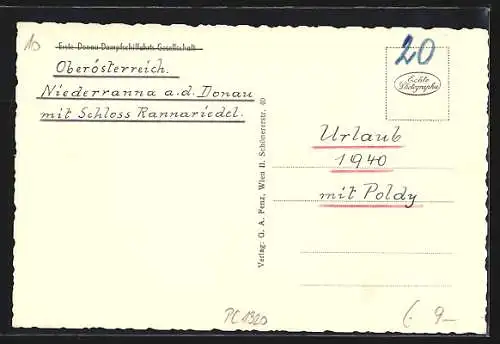 10
Erste Donau-Dampfschiffahrts-Gesellschaft
Oberösterreich.
Niederranna a.d. Donau
mit Schloss Rannariedel.
20
Echte
Photographie
Urlaub
1940
mit Poldy
Verlag: G. A. Penz, Wien II. Schönererstr. 40
PC 1320
(. 9—